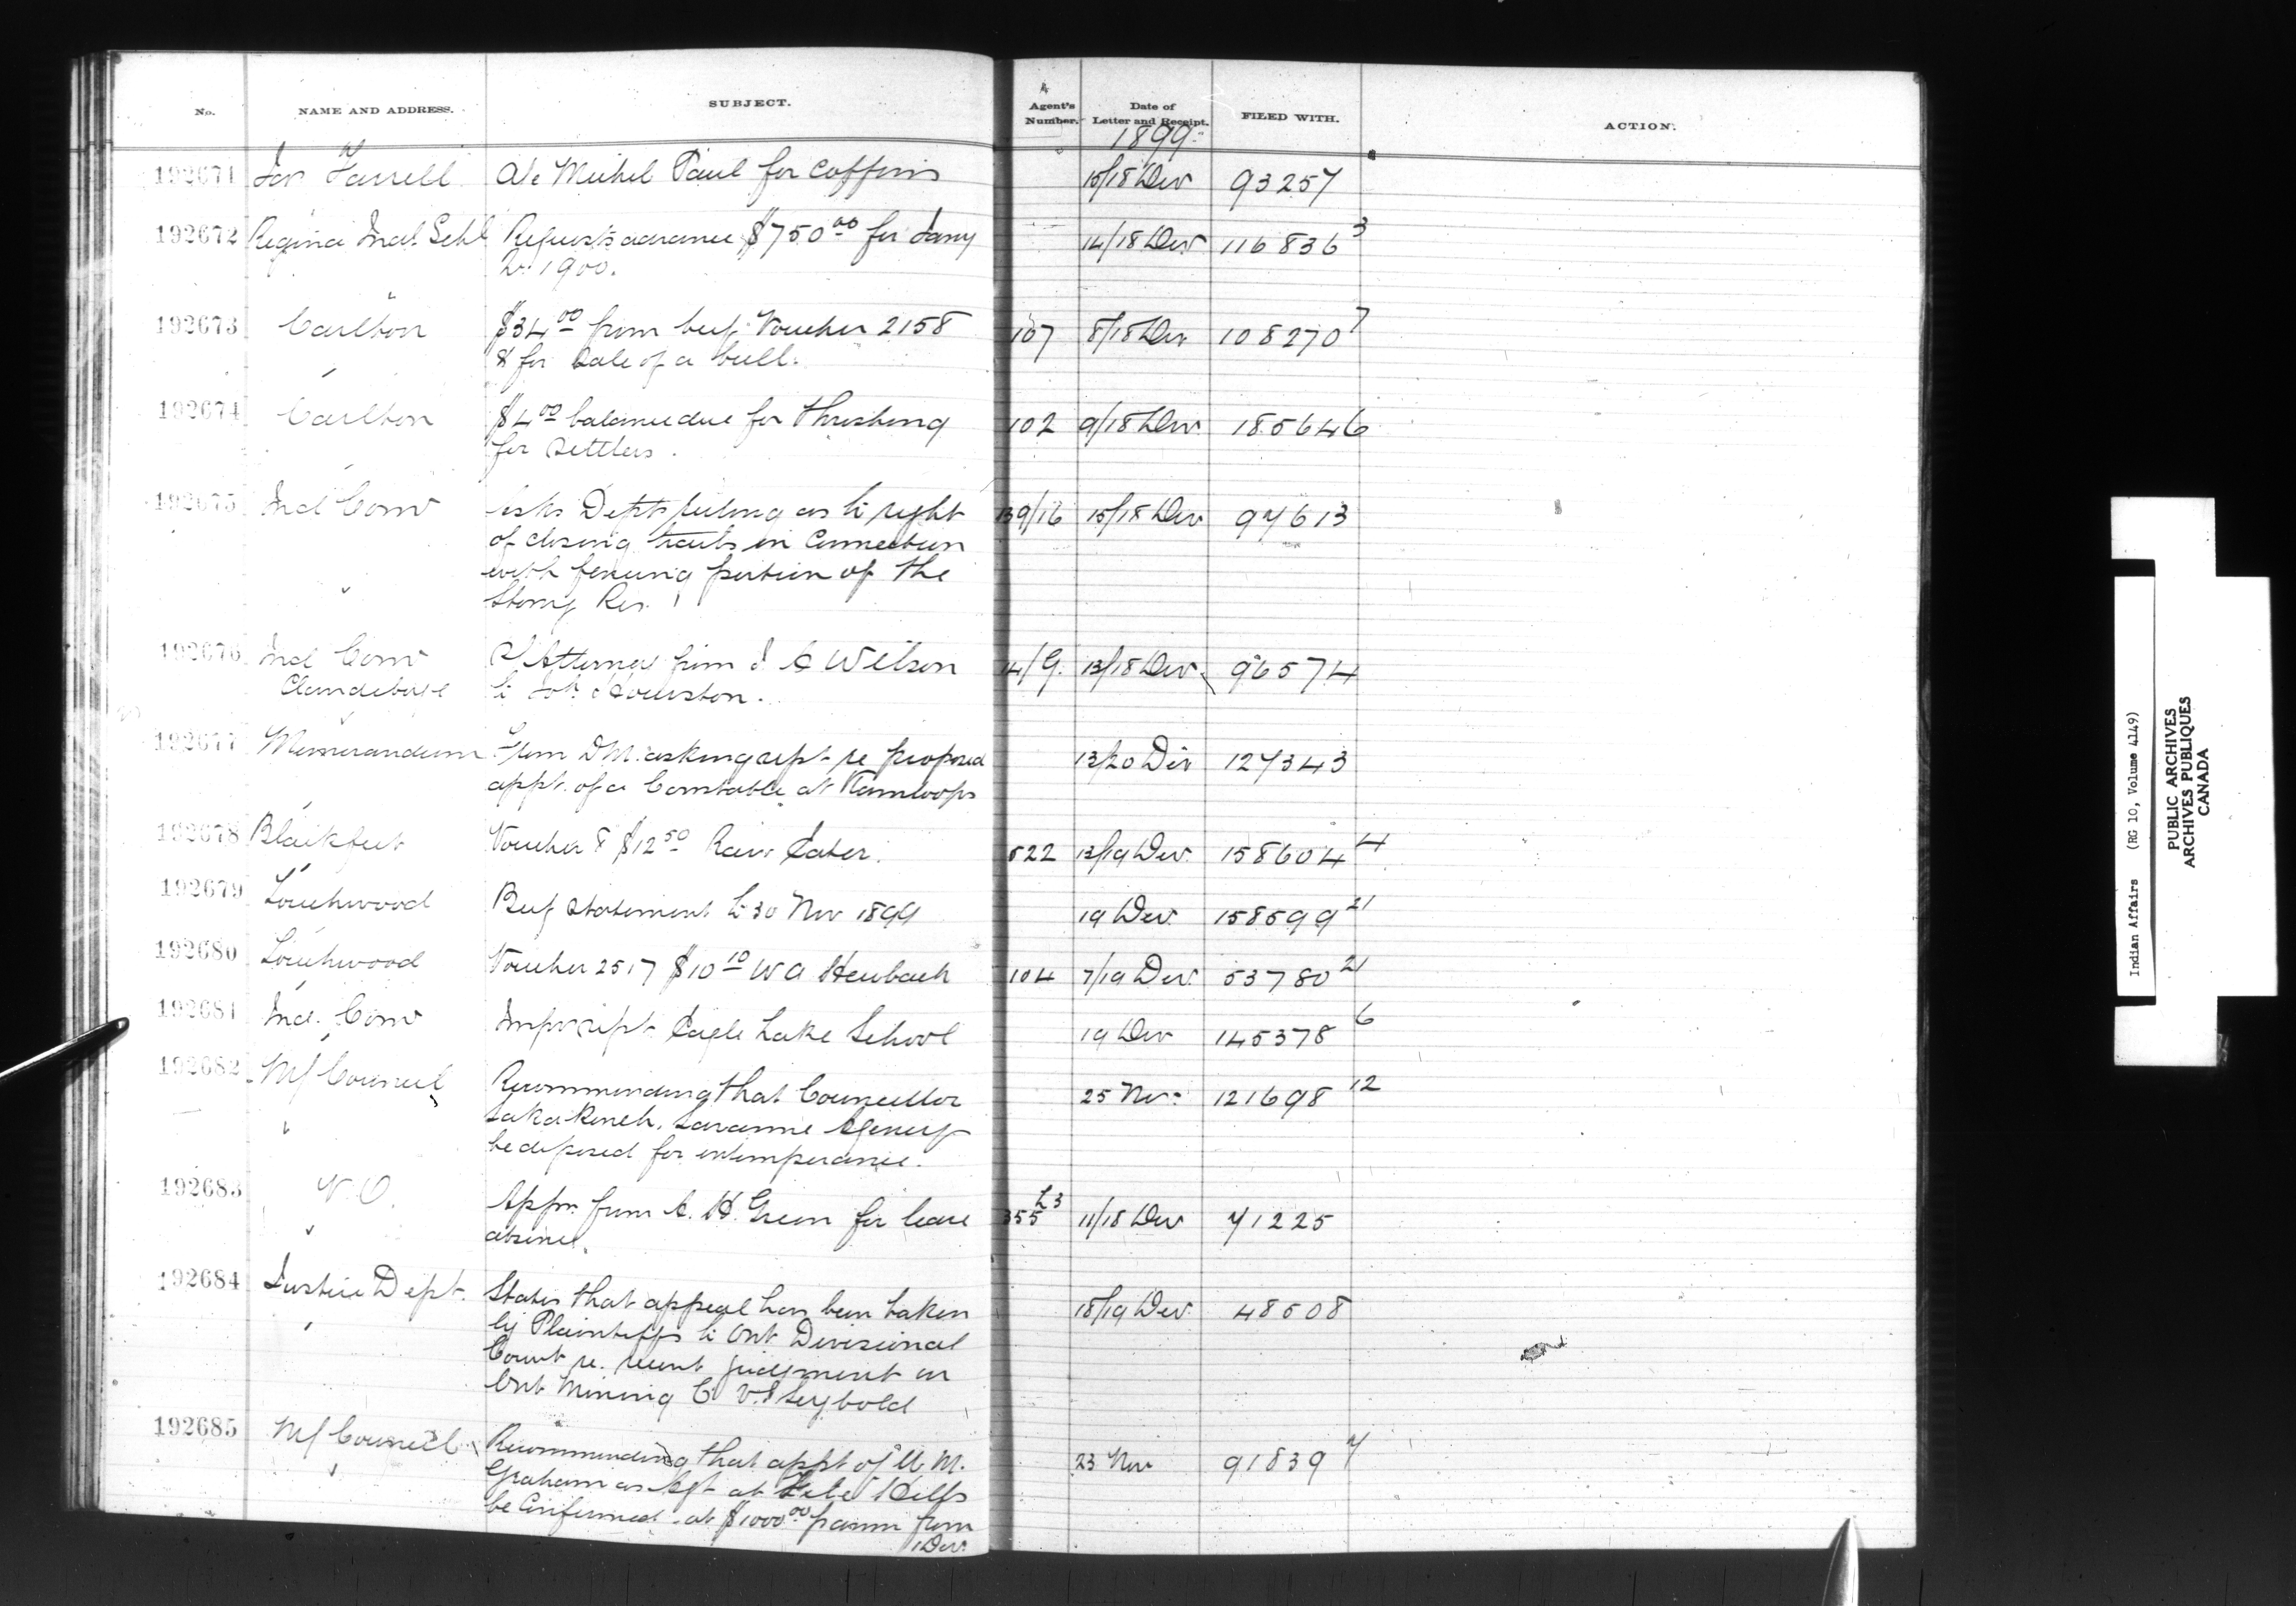 No. NAME AND ADDRESS. SUBJECT. Agent's Number. Date of Letter and Receipt. FILED WITH. ACTION.
1899
192671 Jas Farrell a/c Michel Paul for coffins 15/18 Dec 93257
192672 Regina Ind. Schl Requests advance $750.00 for Jany 14/18 Dec 116836 3
1900.
192673 Carlton $34.00 from beef Voucher 2158 107 8/18 Dec 108270 7
& for sale of a bull.
192674 Carlton $4.00 balance due for threshing 102 9/18 Dec 185646
for settlers.
192675 Ind Comr Asks Dept ruling as to right 139/16 15/18 Dec 97613
of closing trails in connection
with fencing portion of the
Stony Res.
192676 Ind Comr P/Attorney from J. A Wilson 14/G. 13/18 Dec 96574
Clandeboye to Houston.
192677 Memorandum from D.M. asking rept re proposed 13/20 Dec 127343
appt. of a Constable at Kamloops
192678 Blackfeet Voucher 8 $12.50 Rain Eater. 522 13/19 Dec 158604 4
192679 Touchwood Beef Statement to 30 Nov 1899 19 Dec 158599 21
192680 Touchwood Voucher 2517 $10.10 W A Heubach 104 7/19 Dec 53780 21
192681 Ind. Comr Insp rept Eagle Lake School 19 Dec 145378 6
192682 M/Council Recommending that Councillor 25 Nov 121698 12
Savanne Agency
be deposed for intemperance.
192683 V.O. Appn from A. H. Green for leave 355 L3 11/18 Dec 71225
absence.
192684 Justice Dept. States that appeal has been taken 18/19 Dec 48508
by Plaintiffs to Ont Divisional
Court re. recent judgment in
Ont Mining Co v. Seybold
192685 M/Council Recommending that appt of W. M. 23 Nov 91839 7
Graham as Agt at File Hills
be confirmed at $1000.00 p annum from
1 Dec.
Indian Affairs (RG 10, Volume 4149)
PUBLIC ARCHIVES
ARCHIVES PUBLIQUES
CANADA